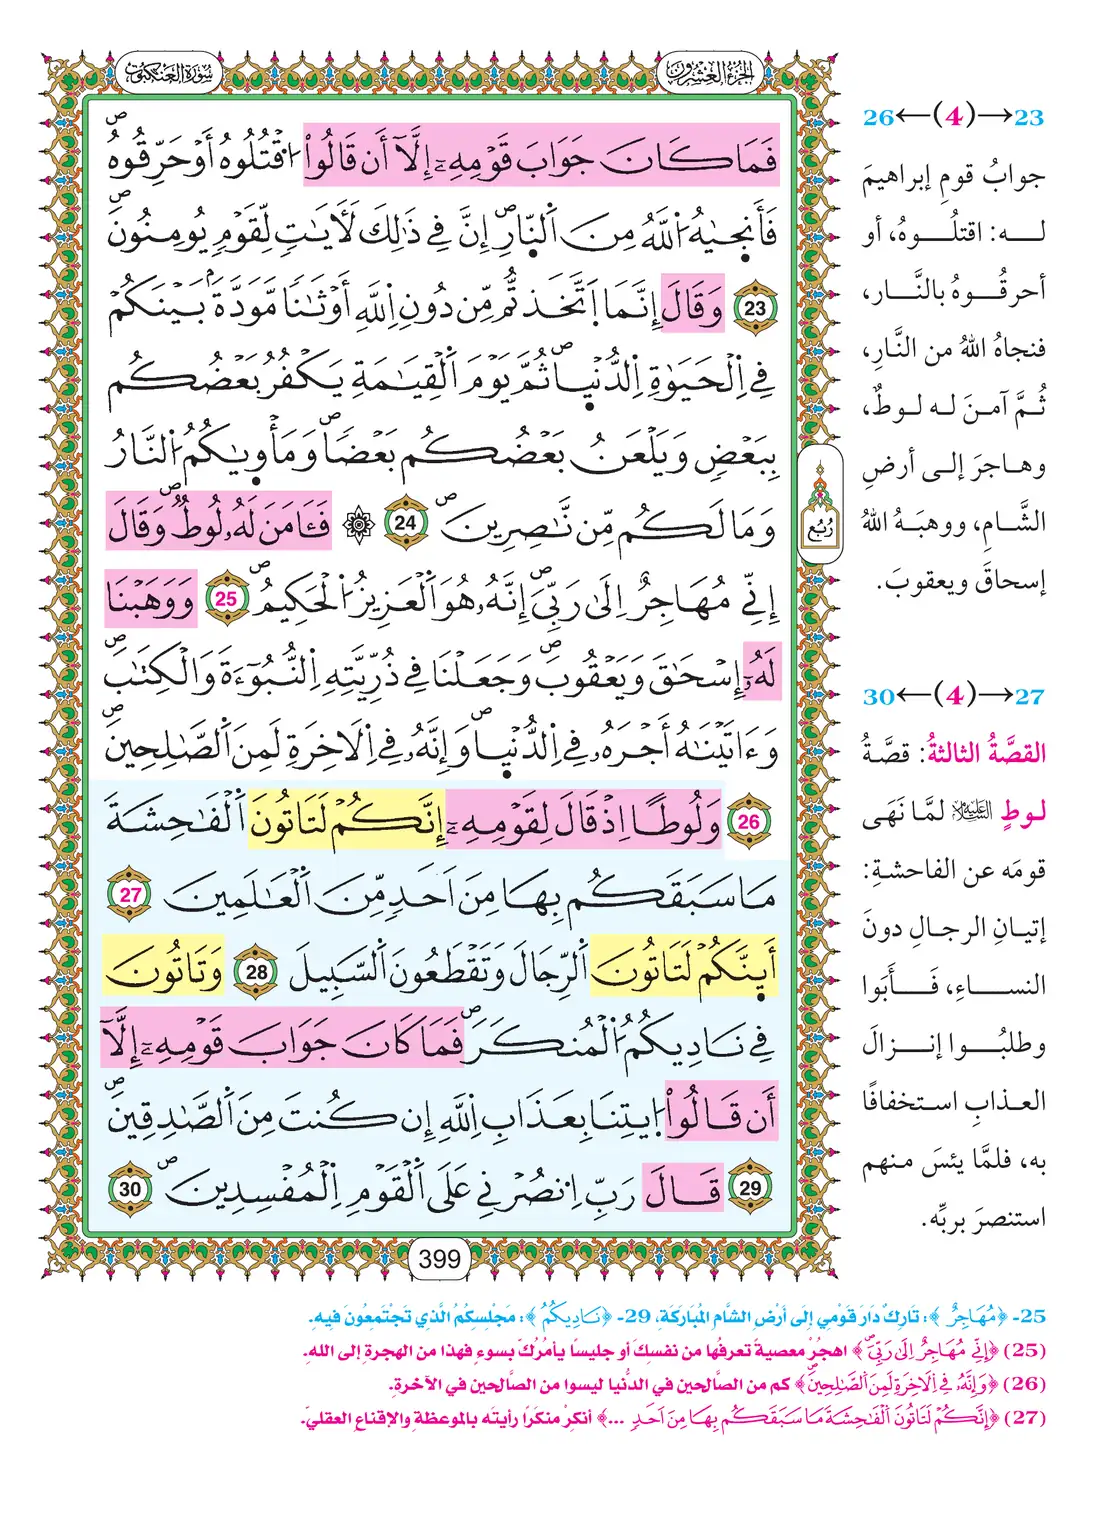 سورة العنكبوت
الجزء العشرون
فَمَا كَانَ جَوَابَ قَوْمِهِۦٓ إِلَّآ أَن قَالُوا۟ اُ۟قْتُلُوهُ أَوْ حَرِّقُوهُۖ
فَأَنج۪يٰهُ اُ۬للَّهُ مِنَ اَ۬لنّ۪ارِۖ إِنَّ فِي ذَٰلِكَ لَأٓيَٰتٖ لِّقَوْمٖ يُومِنُونَۖ
23 وَقَالَ إِنَّمَا اَ۪تَّخَذتُّم مِّن دُونِ اِ۬للَّهِ أَوْثَٰنٗا مَّوَدَّةَۢ بَيْنَكُمْ
فِي اِ۬لْحَيَوٰةِ اِ۬لدُّنْي۪اۖ ثُمَّ يَوْمَ اَ۬لْقِيَٰمَةِ يَكْفُرُ بَعْضُكُم
بِبَعْضٖ وَيَلْعَنُ بَعْضُكُم بَعْضٗاۖ وَمَأْو۪يٰكُمُ اُ۬لنَّارُ
وَمَا لَكُم مِّن نَّٰصِرِينَۖ 24 ۞ فَـَٔامَنَ لَهُۥ لُوطٞۖ وَقَالَ
إِنِّي مُهَاجِرٌ اِلَىٰ رَبِّيَۖ إِنَّهُۥ هُوَ اَ۬لْعَزِيزُ اُ۬لْحَكِيمُۖ 25 وَوَهَبْنَا
لَهُۥٓ إِسْحَٰقَ وَيَعْقُوبَۖ وَجَعَلْنَا فِي ذُرِّيَّتِهِ اِ۬لنُّبُوٓءَةَ وَالْكِتَٰبَۖ
وَءَاتَيْنَٰهُ أَجْرَهُۥ فِي اِ۬لدُّنْي۪اۖ وَإِنَّهُۥ فِي اِ۬لَاخِرَةِ لَمِنَ اَ۬لصَّٰلِحِينَۖ
26 وَلُوطًا اِذْ قَالَ لِقَوْمِهِۦٓ إِنَّكُمْ لَتَاتُونَ اَ۬لْفَٰحِشَةَ
مَا سَبَقَكُم بِهَا مِنَ اَحَدٖ مِّنَ اَ۬لْعَٰلَمِينَ 27
أَي۪نَّكُمْ لَتَاتُونَ اَ۬لرِّجَالَ وَتَقْطَعُونَ اَ۬لسَّبِيلَ 28 وَتَاتُونَ
فِي نَادِيكُمُ اُ۬لْمُنكَرَۖ فَمَا كَانَ جَوَابَ قَوْمِهِۦٓ إِلَّآ
أَن قَالُوا۟ اُ۪يتِنَا بِعَذَابِ اِ۬للَّهِ إِن كُنتَ مِنَ اَ۬لصَّٰدِقِينَۖ
29 قَالَ رَبِّ اِ۟نصُرْنِي عَلَى اَ۬لْقَوْمِ اِ۬لْمُفْسِدِينَۖ 30
رُبُع
399
23→(4)←26
جوابُ قومِ إبراهيمَ
لـه: اقتلُـوهُ، أو
أحرقُـوهُ بالنَّـارِ،
فنجاهُ اللهُ من النَّارِ،
ثُمَّ آمـنَ لـه لـوطٌ،
وهـاجرَ إلـى أرضِ
الشَّـامِ، ووهبَـهُ اللهُ
إسحاقَ ويعقوبَ.
27→(4)←30
القصَّةُ الثالثةُ: قصَّـةُ
لـوطٍ عليه السلام لمَّـا نَهَى
قومَه عن الفاحشـةِ:
إتيـانِ الرجـالِ دونَ
النســاءِ، فَــأَبَوا
وطلبُـوا إنـزالَ
العـذابِ استـخفافًا
به، فلمَّا يئسَ مـنهم
استنصرَ بربِّه.
25- ﴿مُهَاجِرٌ﴾: تَارِكٌ دَارَ قَوْمِي إِلَى أَرْضِ الشَّامِ المُبَارَكَةِ، 29- ﴿نَادِيكُمُ﴾: مَجْلِسِكُمُ الَّذِي تَجْتَمِعُونَ فِيهِ.
(25) ﴿إِنِّي مُهَاجِرٌ اِلَىٰ رَبِّيَۖ﴾ اهجُرْ معصيةً تعرفُها من نفسِكَ أو جليسًا يأمُرُكَ بسوءٍ فهذا من الهجرةِ إلى اللهِ.
(26) ﴿وَإِنَّهُۥ فِي اِ۬لَاخِرَةِ لَمِنَ اَ۬لصَّٰلِحِينَۖ﴾ كم من الصَّالحين في الدُّنيا ليسوا من الصَّالحين في الآخرةِ.
(27) ﴿إِنَّكُمْ لَتَاتُونَ اَ۬لْفَٰحِشَةَ مَا سَبَقَكُم بِهَا مِنَ اَحَدٖ ...﴾ أنكِرْ منكَرًا رأيتَه بالموعظةِ والإقناعِ العقليِّ.